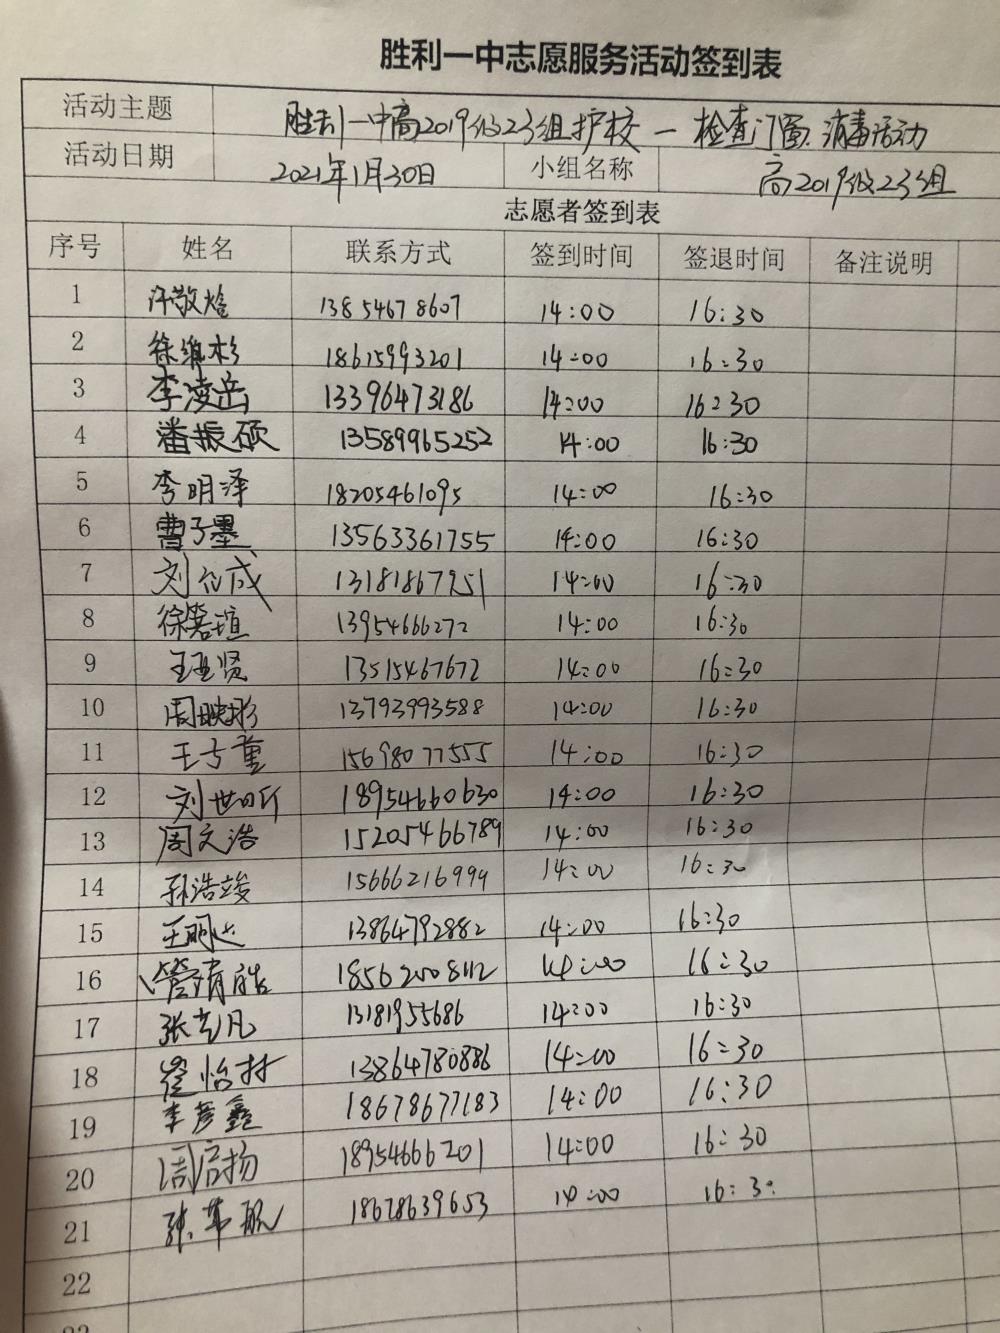 胜利一中志愿服务活动签到表
活动主题 胜利一中高2019级23组护校一检查门窗.消毒活动
活动日期 2021年1月30日 小组名称 高2019级23组
志愿者签到表
序号 姓名 联系方式 签到时间 签退时间 备注说明
1 许敬 13854678607 14:00 16:30
2 徐维杉 18615993201 14:00 16:30
3 李凌岳 13396473186 14:00 16:30
4 潘振硕 13589965252 14:00 16:30
5 李明泽 18205461095 14:00 16:30
6 曹子墨 13563361755 14:00 16:30
7 刘 成 13181867951 14:00 16:30
8 徐 瑄 13954666272 14:00 16:30
9 王亚贤 13515467672 14:00 16:30
10 周映彤 13793993588 14:00 16:30
11 王 董 15698077555 14:00 16:30
12 刘世昕 18954660630 14:00 16:30
13 周文浩 15205466789 14:00 16:30
14 孙浩竣 15666216999 14:00 16:30
15 王 13864792882 14:00 16:30
16 管靖皓 18562008112 14:00 16:30
17 张艺凡 13181955686 14:00 16:30
18 崔怡村 13864780886 14:00 16:30
19 李彦鑫 18678677183 14:00 16:30
20 周启扬 18954666201 14:00 16:30
21 张 18678639653 14:00 16:30
22